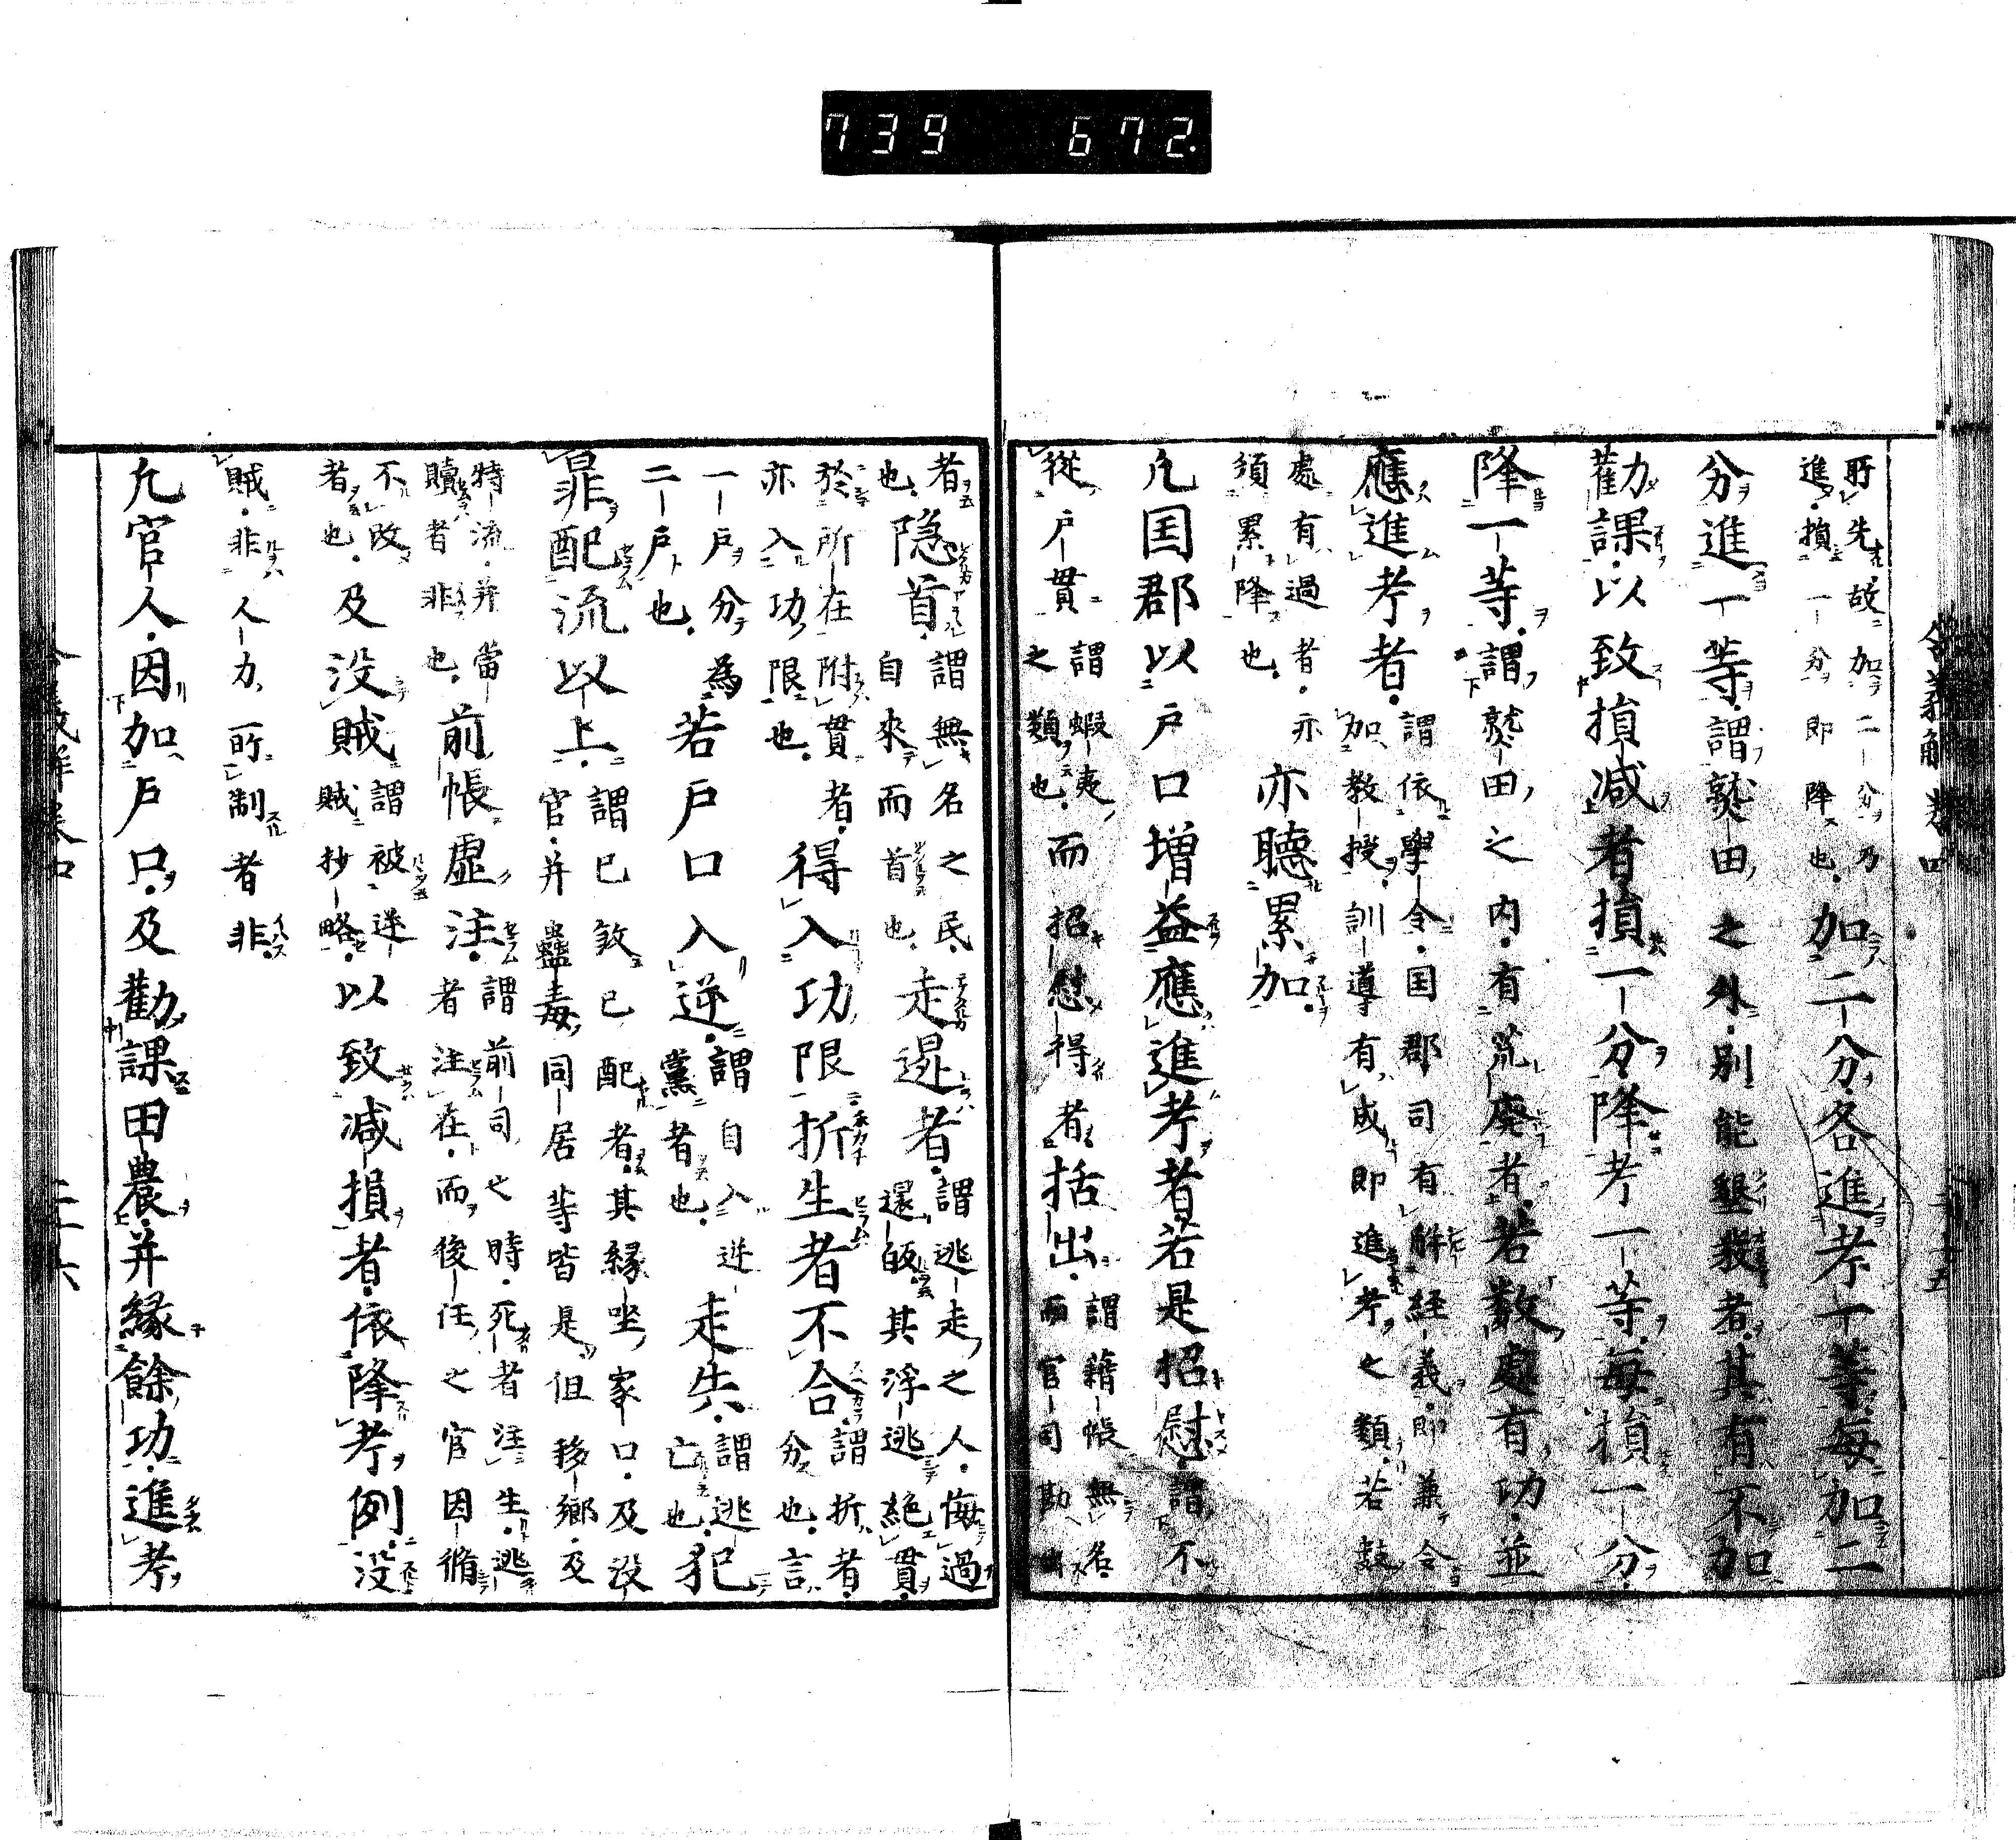 739 672
所先故加二分乃
進損一分即降也加二分各進考一等每加二
分進一等謂熟田之外別能墾發者其有不加
勸課以致損減者損一分降考一等每損一分
降一等謂熟田之内有荒廃者若数處有功並
應進考者謂依學令国郡司有解経義即兼令
加教授訓導有成即進考之類若数
處有過者亦
須累降也亦聴累加
凢国郡以戸口増益應進考者若是招慰謂不
從戸貫謂蝦夷
之類也而招慰得者括出謂籍帳無名
而官司勘出
者隠首謂無名之民
也自來而首也走還者謂逃走之人悔過
還皈其浮逃絶貫
於所在附貫者
亦入功限也得入功限折生者不合謂折者
分也言
一戸分為
二戸也若戸口入逆謂自入逆
黨者也走失謂逃
亡也犯
罪配流以上謂已敘已配者其縁坐家口及没
官并蠱毒同居等皆是但移郷及
特流并當
贖者非也前帳虚注謂前司之時死者注生逃
者注在而後任之官因脩
不改
者也及没賊謂被逆
賊抄略以致減損者依降考例没
賊非人力所制者非
凢官人因加戸口及勸課田農并縁餘功進考
令義解巻四